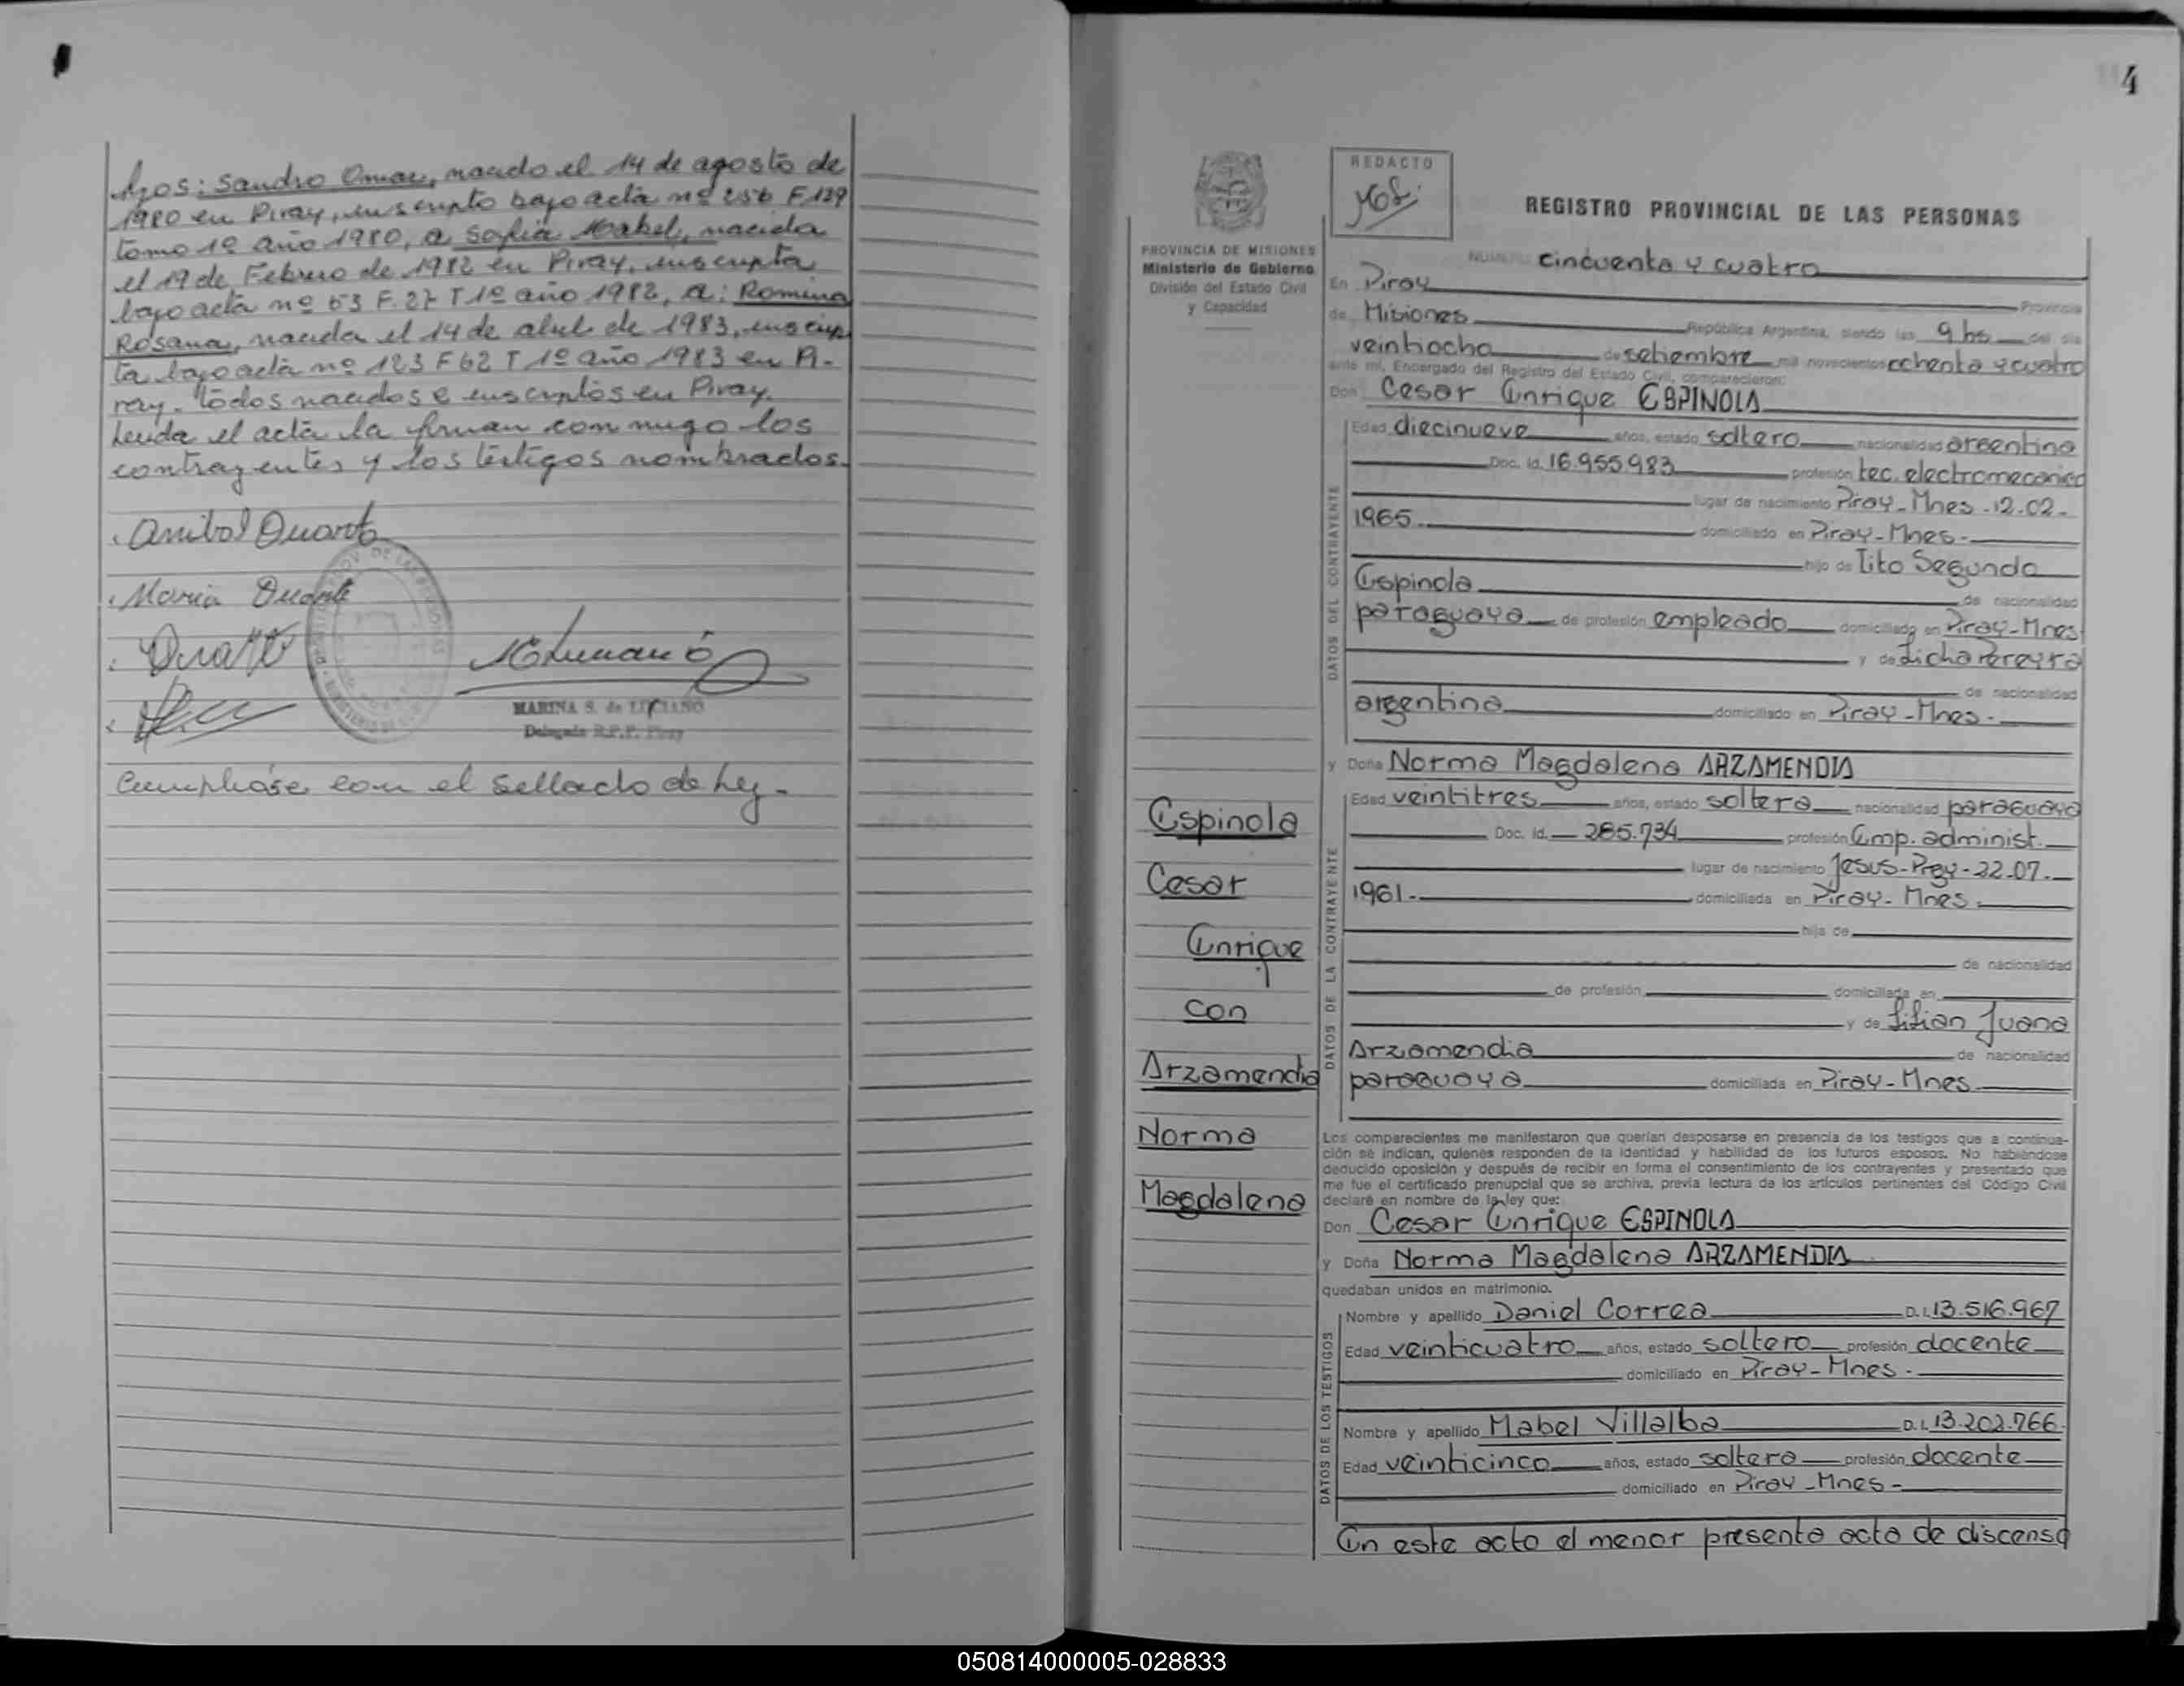 hijos: Sandro Omar, nacido el 14 de agosto de
1980 en Piray, inscripto bajo acta nº 256 F 129
tomo 1º año 1980, a Sofia Mabel, nacida
el 19 de Febrero de 1982 en Piray, inscripta
bajo acta nº 53 F. 27 T 1º año 1982, a: Romina
Rosana, nacida el 14 de abril de 1983, inscrip
ta bajo acta nº 123 F 62 T 1º año 1983 en Pi-
ray. todos nacidos e inscriptos en Piray.
Leida el acta la firman conmigo los
contrayentes y los testigos nombrados.
Anibal Duarte
Maria Duarte
Duarte
MARINA S. de LUCIANO
Delegada R.P.P. Piray
Cumpliose con el sellado de ley.-
4
REDACTO
PROVINCIA DE MISIONES
Ministerio de Gobierno
División del Estado Civil
y Capacidad
REGISTRO PROVINCIAL DE LAS PERSONAS
NUMERO cincuenta y cuatro
En Piray Provincia
de Misiones República Argentina, siendo las 9 hs del día
veintiocho de setiembre mil novecientos ochenta y cuatro
ante mí, Encargado del Registro del Estado Civil, comparecieron:
Don Cesar Enrique ESPINOLA
DATOS DEL CONTRAYENTE
Edad diecinueve años, estado soltero nacionalidad argentina
Doc. Id. 16.955.983 profesión tec. electromecanico
lugar de nacimiento Piray-Mnes-12.02.-
1965. domiciliado en Piray-Mnes-
hijo de Tito Segundo
Espinola de nacionalidad
paraguaya de profesión empleado domiciliado en Piray-Mnes
y de Licha Pereyra
de nacionalidad
argentina domiciliado en Piray-Mnes-
y Doña Norma Magdalena ARZAMENDIA
DATOS DE LA CONTRAYENTE
Edad veintitres años, estado soltera nacionalidad paraguaya
Doc. Id. 285.734 profesión Emp. administ.
lugar de nacimiento Jesus-Prgy-22-07.-
1961.- domiciliada en Piray-Mnes.
hija de
de nacionalidad
de profesión domiciliada en
y de Lilian Juana
Arzamendia de nacionalidad
paraguaya domiciliada en Piray-Mnes
Espinola
Cesar
Enrique
con
Arzamendia
Norma
Magdalena
Los comparecientes me manifestaron que querían desposarse en presencia de los testigos que a continua-
ción se indican, quienes responden de la identidad y habilidad de los futuros esposos. No habiéndose
deducido oposición y después de recibir en forma el consentimiento de los contrayentes y presentado que
me fue el certificado prenupcial que se archiva, previa lectura de los artículos pertinentes del Código Civil
declaré en nombre de la ley que:
Don Cesar Enrique ESPINOLA
y Doña Norma Magdalena ARZAMENDIA
quedaban unidos en matrimonio.
DATOS DE LOS TESTIGOS
Nombre y apellido Daniel Correa D.I. 13.516.967
Edad veinticuatro años, estado soltero profesión docente
domiciliado en Piray-Mnes-
Nombre y apellido Mabel Villalba D.I. 13.202.766
Edad veinticinco años, estado soltera profesión docente
domiciliado en Piray-Mnes-
En este acto el menor presenta acta de discenso
050814000005-028833